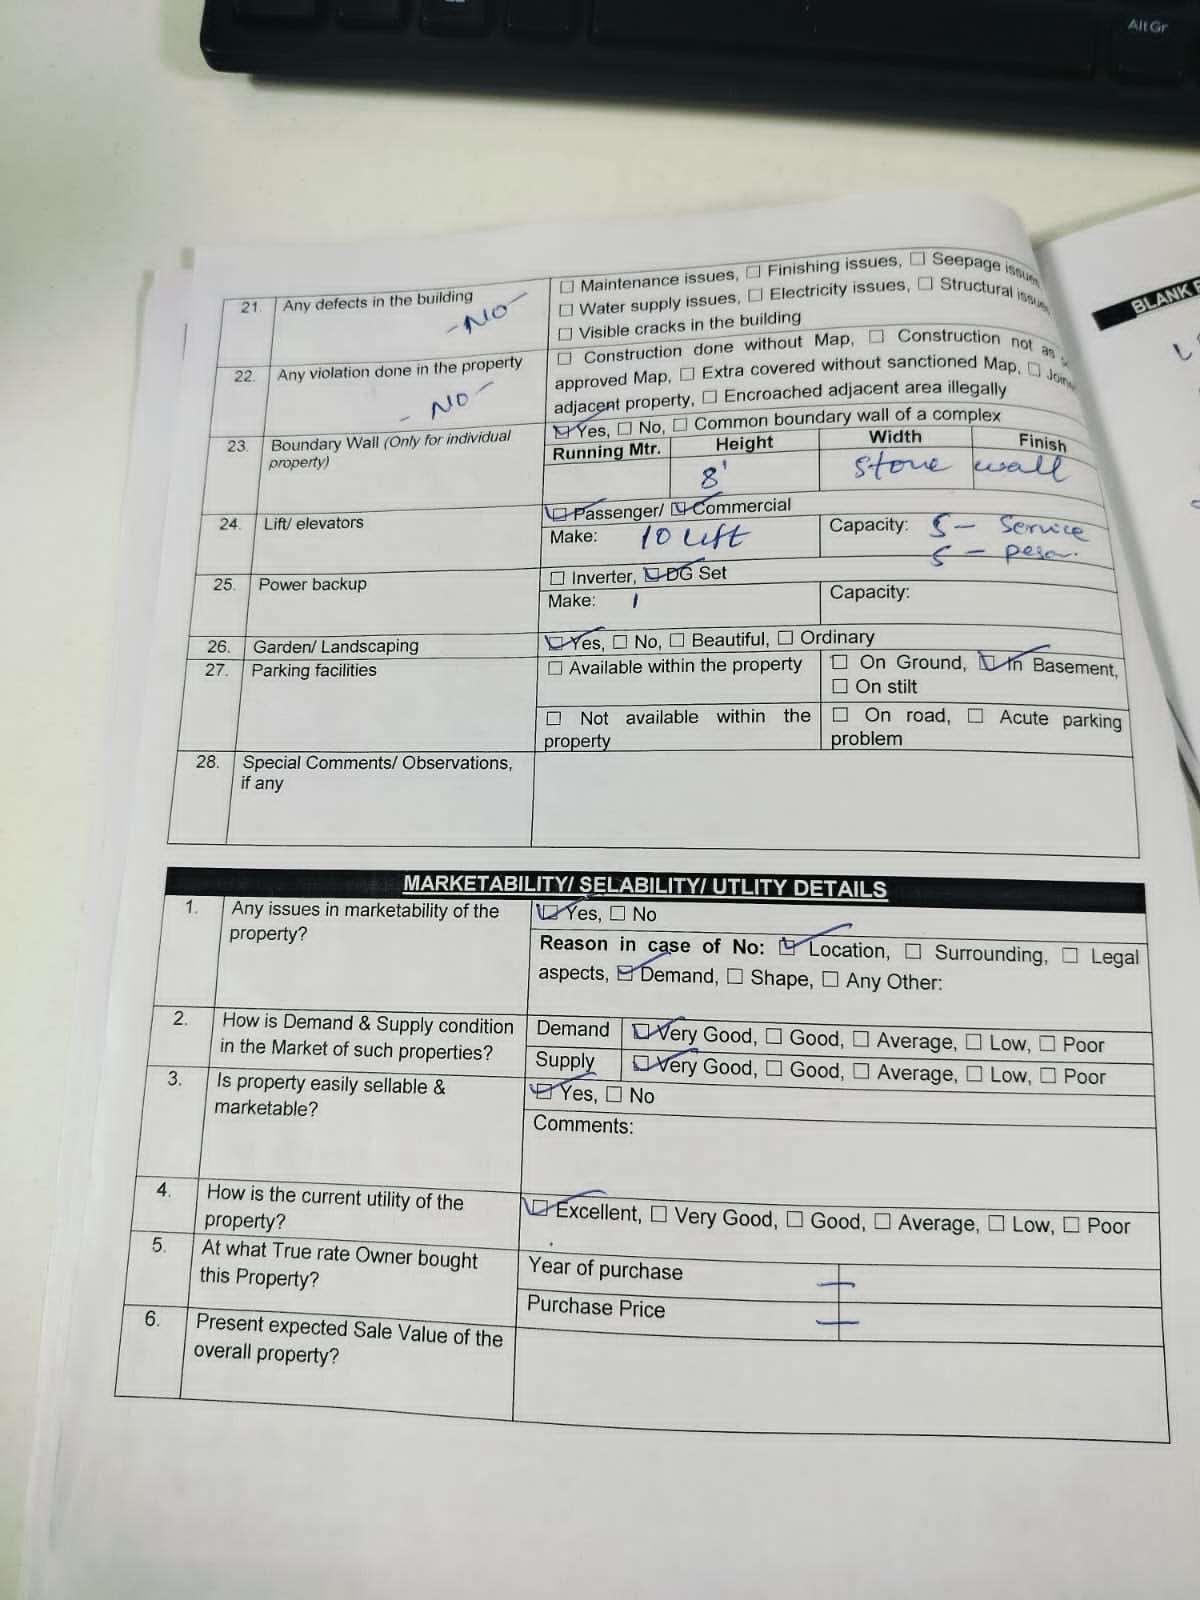 Alt Gr
BLANK
21. Any defects in the building
-NO-
☐ Maintenance issues, ☐ Finishing issues, ☐ Seepage issues
☐ Water supply issues, ☐ Electricity issues, ☐ Structural issues
☐ Visible cracks in the building
22. Any violation done in the property
- NO -
☐ Construction done without Map, ☐ Construction not as
approved Map, ☐ Extra covered without sanctioned Map, ☐
adjacent property, ☐ Encroached adjacent area illegally
23. Boundary Wall (Only for individual
property)
☑ Yes, ☐ No, ☐ Common boundary wall of a complex
Running Mtr. Height Width Finish
8' stone wall
24. Lift/ elevators
☑ Passenger/ ☑ Commercial
Make: 10 Lift Capacity: 5 - Service
5 -
25. Power backup
☐ Inverter, ☑ DG Set
Make: 1 Capacity:
26. Garden/ Landscaping ☑ Yes, ☐ No, ☐ Beautiful, ☐ Ordinary
27. Parking facilities ☐ Available within the property ☐ On Ground, ☑ In Basement,
☐ On stilt
☐ Not available within the
property
☐ On road, ☐ Acute parking
problem
28. Special Comments/ Observations,
if any
MARKETABILITY/ SELABILITY/ UTLITY DETAILS
1. Any issues in marketability of the
property?
☑ Yes, ☐ No
Reason in case of No: ☑ Location, ☐ Surrounding, ☐ Legal
aspects, ☑ Demand, ☐ Shape, ☐ Any Other:
2. How is Demand & Supply condition
in the Market of such properties?
Demand ☑ Very Good, ☐ Good, ☐ Average, ☐ Low, ☐ Poor
Supply ☑ Very Good, ☐ Good, ☐ Average, ☐ Low, ☐ Poor
3. Is property easily sellable &
marketable?
☑ Yes, ☐ No
Comments:
4. How is the current utility of the
property?
☑ Excellent, ☐ Very Good, ☐ Good, ☐ Average, ☐ Low, ☐ Poor
5. At what True rate Owner bought
this Property?
Year of purchase —
Purchase Price —
6. Present expected Sale Value of the
overall property?